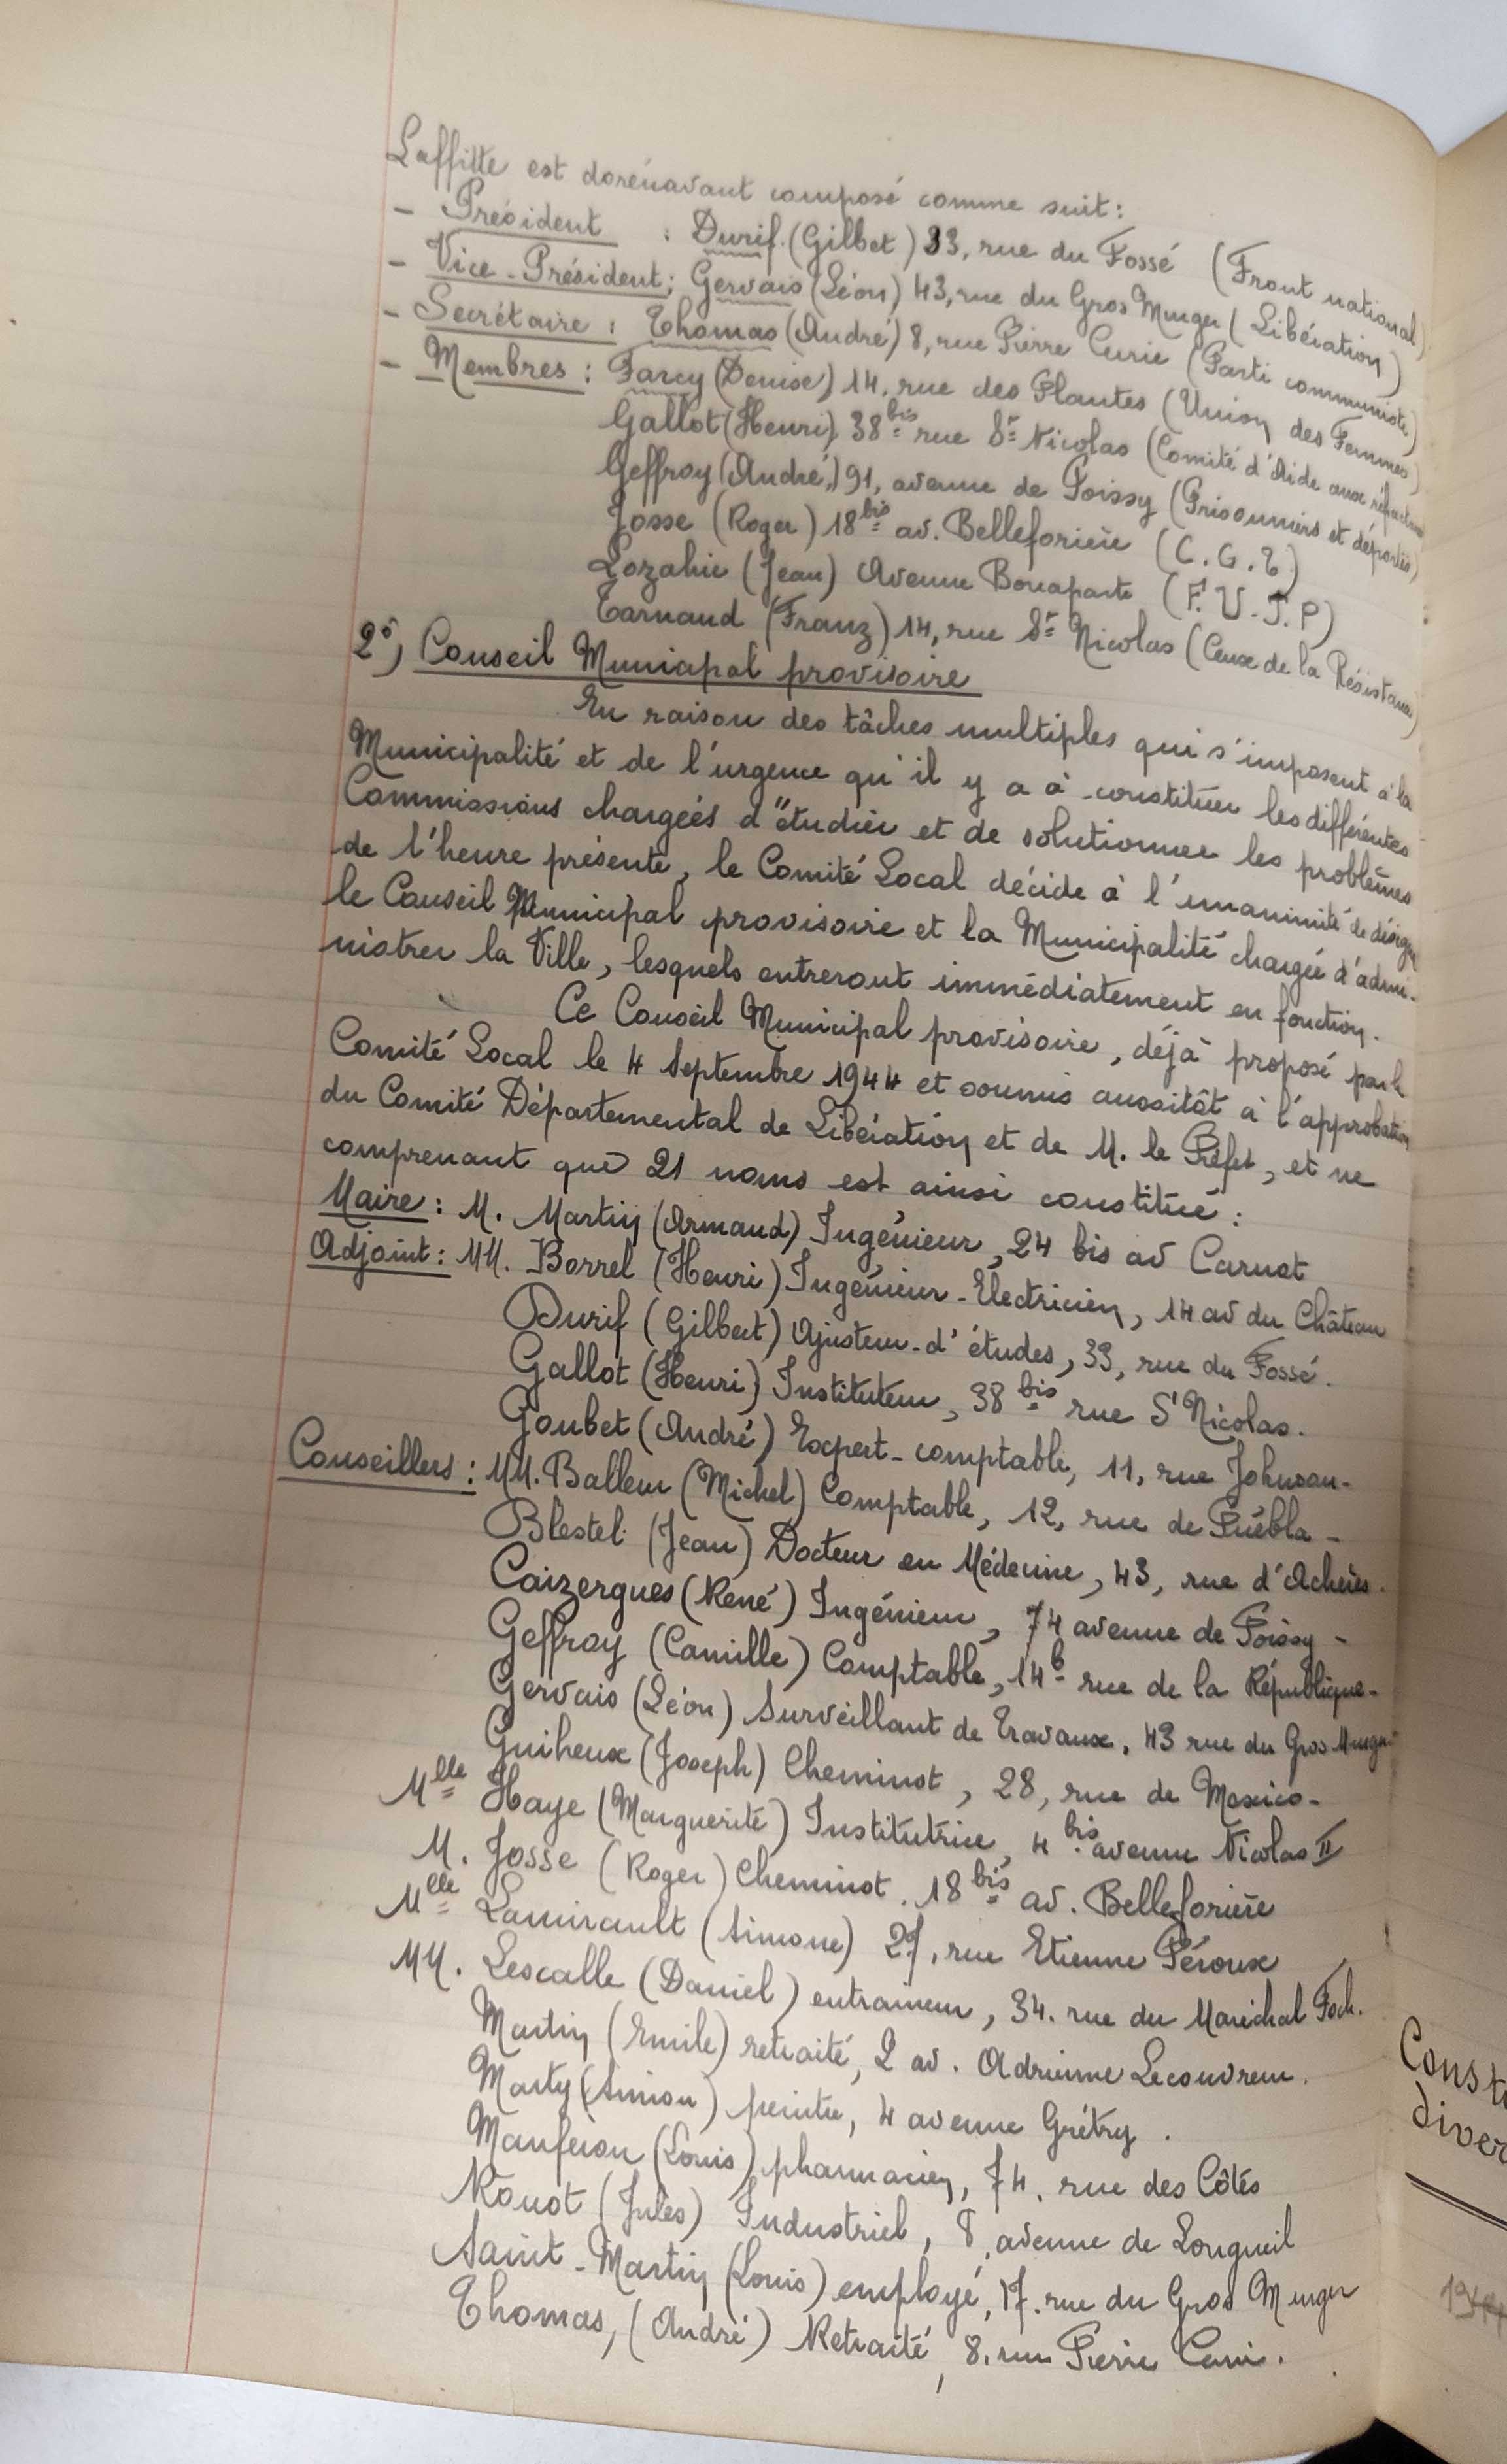 Laffitte est dorénavant composé comme suit :
- Président : Durif (Gilbet) 33, rue du Fossé (Front national)
- Vice-Président ; Gervais (Léon) 43, rue du Gros Murger (Libération)
- Secrétaire : Thomas (André) 8, rue Pierre Curie (Parti communiste)
- Membres : Farcy (Denise) 14, rue des Plantes (Union des Femmes)
Gallot (Henri) 38 bis rue St Nicolas (Comité d'Aide aux
Geffroy (André) 91, avenue de Poissy (Prisonniers et déportés)
Josse (Roger) 18 bis av. Belleforière (C.G.T)
Lozahic (Jean) Avenue Bonaparte (F.U.J.P)
Tarnaud (Franz) 14, rue St Nicolas (Ceux de la Résistance)
2°) Conseil Municipal provisoire
En raison des tâches multiples qui s'imposent à la
Municipalité et de l'urgence qu'il y a à constituer les différentes
Commissions chargées d'étudier et de solutionner les problèmes
de l'heure présente, le Comité Local décide à l'unanimité de désigner
le Conseil Municipal provisoire et la Municipalité chargée d'admi-
nistrer la Ville, lesquels entreront immédiatement en fonction.
Ce Conseil Municipal provisoire, déjà proposé par le
Comité Local le 4 Septembre 1944 et soumis aussitôt à l'approbation
du Comité Départemental de Libération et de M. le Préfet, et ne
comprenant que 21 noms est ainsi constitué :
Maire : M. Martin (Armand) Ingénieur, 24 bis av Carnot
Adjoint : MM. Borrel (Henri) Ingénieur-Electricien, 14 av du Château
Durif (Gilbert) Ajusteur-d'études, 33, rue du Fossé.
Gallot (Henri) Instituteur, 38 bis rue St Nicolas.
Goubet (André) Expert-comptable, 11, rue Johnson-
Conseillers : MM. Balleur (Michel) Comptable, 12, rue de Puébla -
Blestel (Jean) Docteur en Médecine, 43, rue d'Achères.
Caizergues (René) Ingénieur, 74 avenue de Poissy -
Geffroy (Camille) Comptable, 14 b rue de la République-
Gervais (Léon) Surveillant de Travaux, 43 rue du Gros Murger
Guiheux (Joseph) Cheminot, 28, rue de Mexico-
Mlle Haye (Marguerite) Institutrice, 4 bis avenue Nicolas II
M. Josse (Roger) Cheminot. 18 bis av. Belleforière
Mlle Lamirault (Simone) 27, rue Etienne Péroux
MM. Lescalle (Daniel) entraineur, 34. rue du Maréchal Foch.
Martin (Emile) retraité, 2 av. Adrienne Lecouvreur.
Marty (Simon) peintre, 4 avenue Grétry.
Mauferon (Louis) pharmacien, 74, rue des Côtés
Rouot (Jules) Industriel, 8, avenue de Longueil
Saint-Martin (Louis) employé, 17. rue du Gros Murger
Thomas, (André) Retraité, 8. rue Pierre Curie.